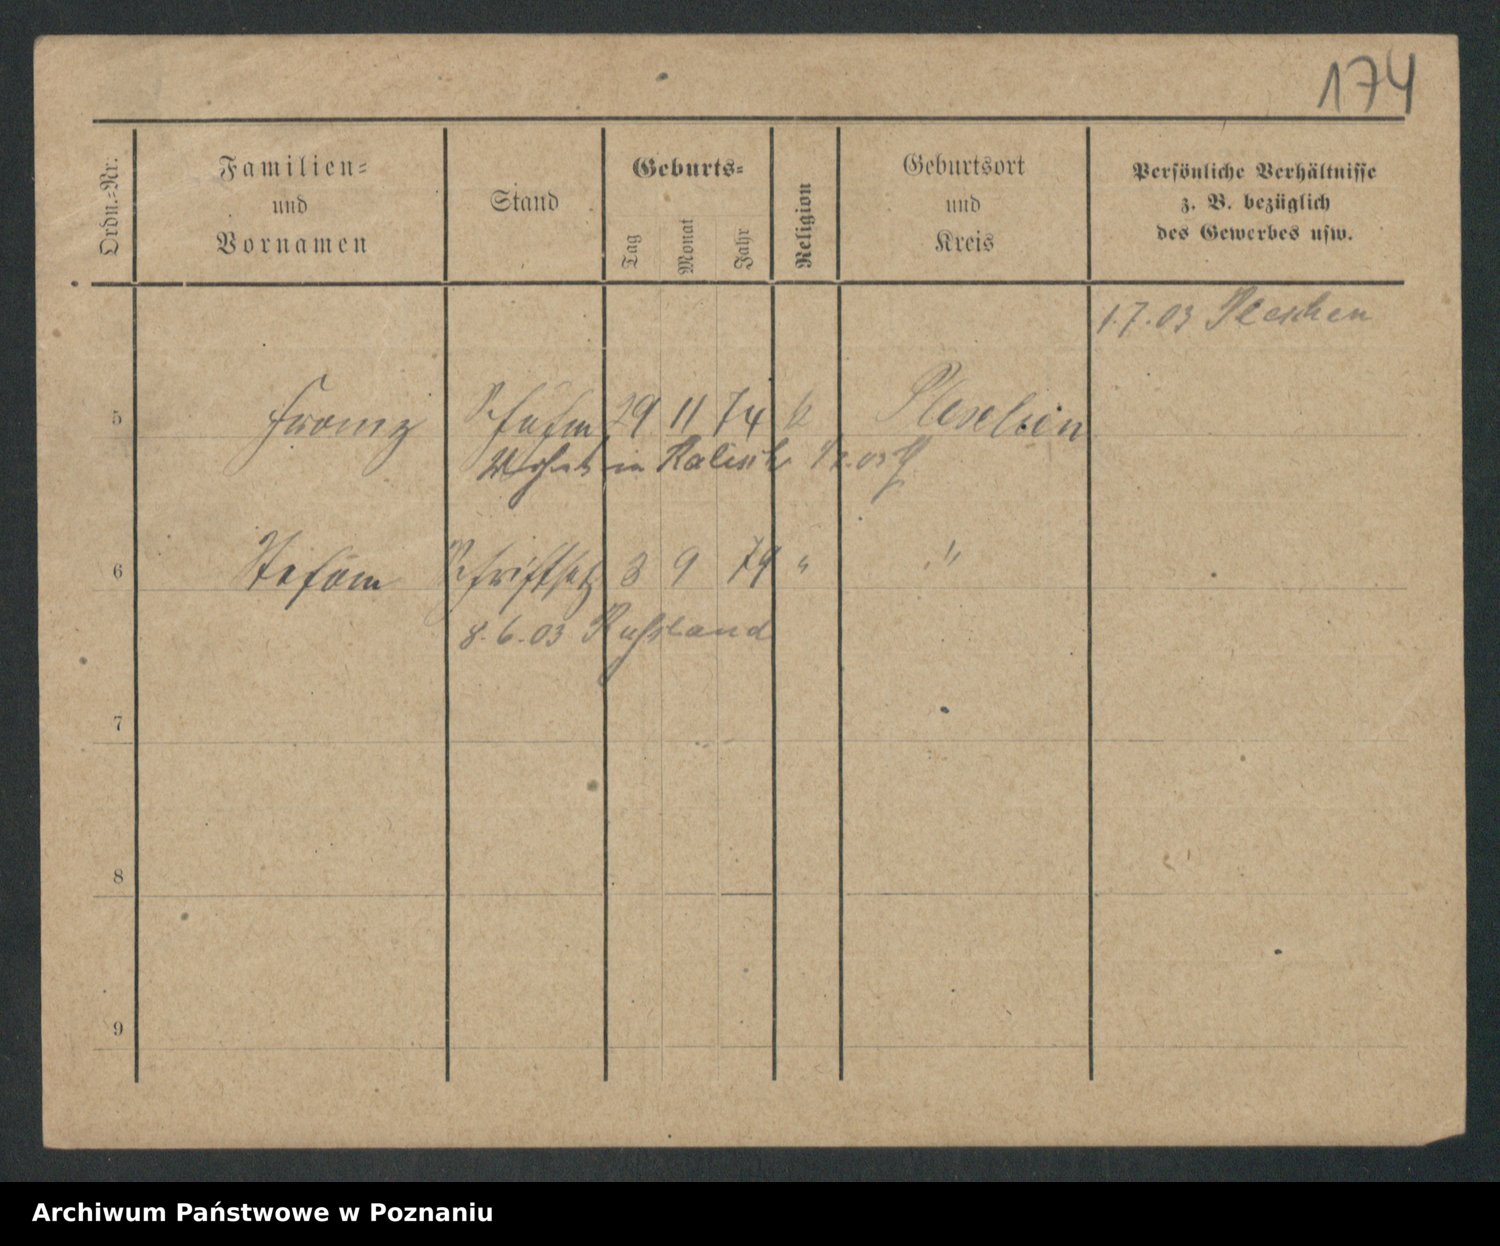 174
Ordn.-Nr.
Familien-
und
Vornamen
Stand
Geburts-
Tag
Monat
Jahr
Religion
Geburtsort
und
Kreis
Persönliche Verhältnisse
z. B. bezüglich
des Gewerbes usw.
1.7.03 Pleschen
5 Franz 29 11 74 k Pleschen
in Kalisch
6 Stefan Schriftsetz 3 9 79 " "
8.6.03 Russland
7
8
9
Archiwum Państwowe w Poznaniu